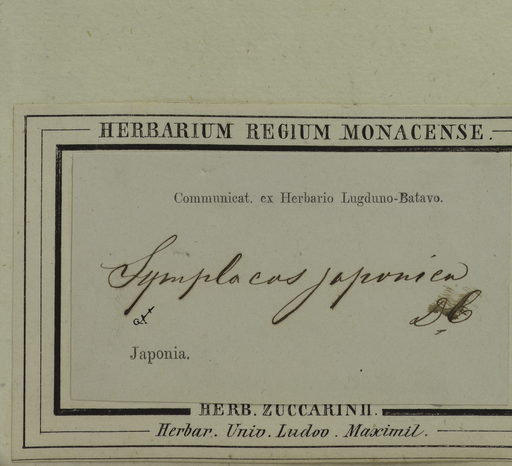 HERBARIUM REGIUM MONACENSE.
Communicat. ex Herbario Lugduno-Batavo.
Symplocos japonica
DC
Japonia.
HERB. ZUCCARINII.
Herbar. Univ. Ludov. Maximil.